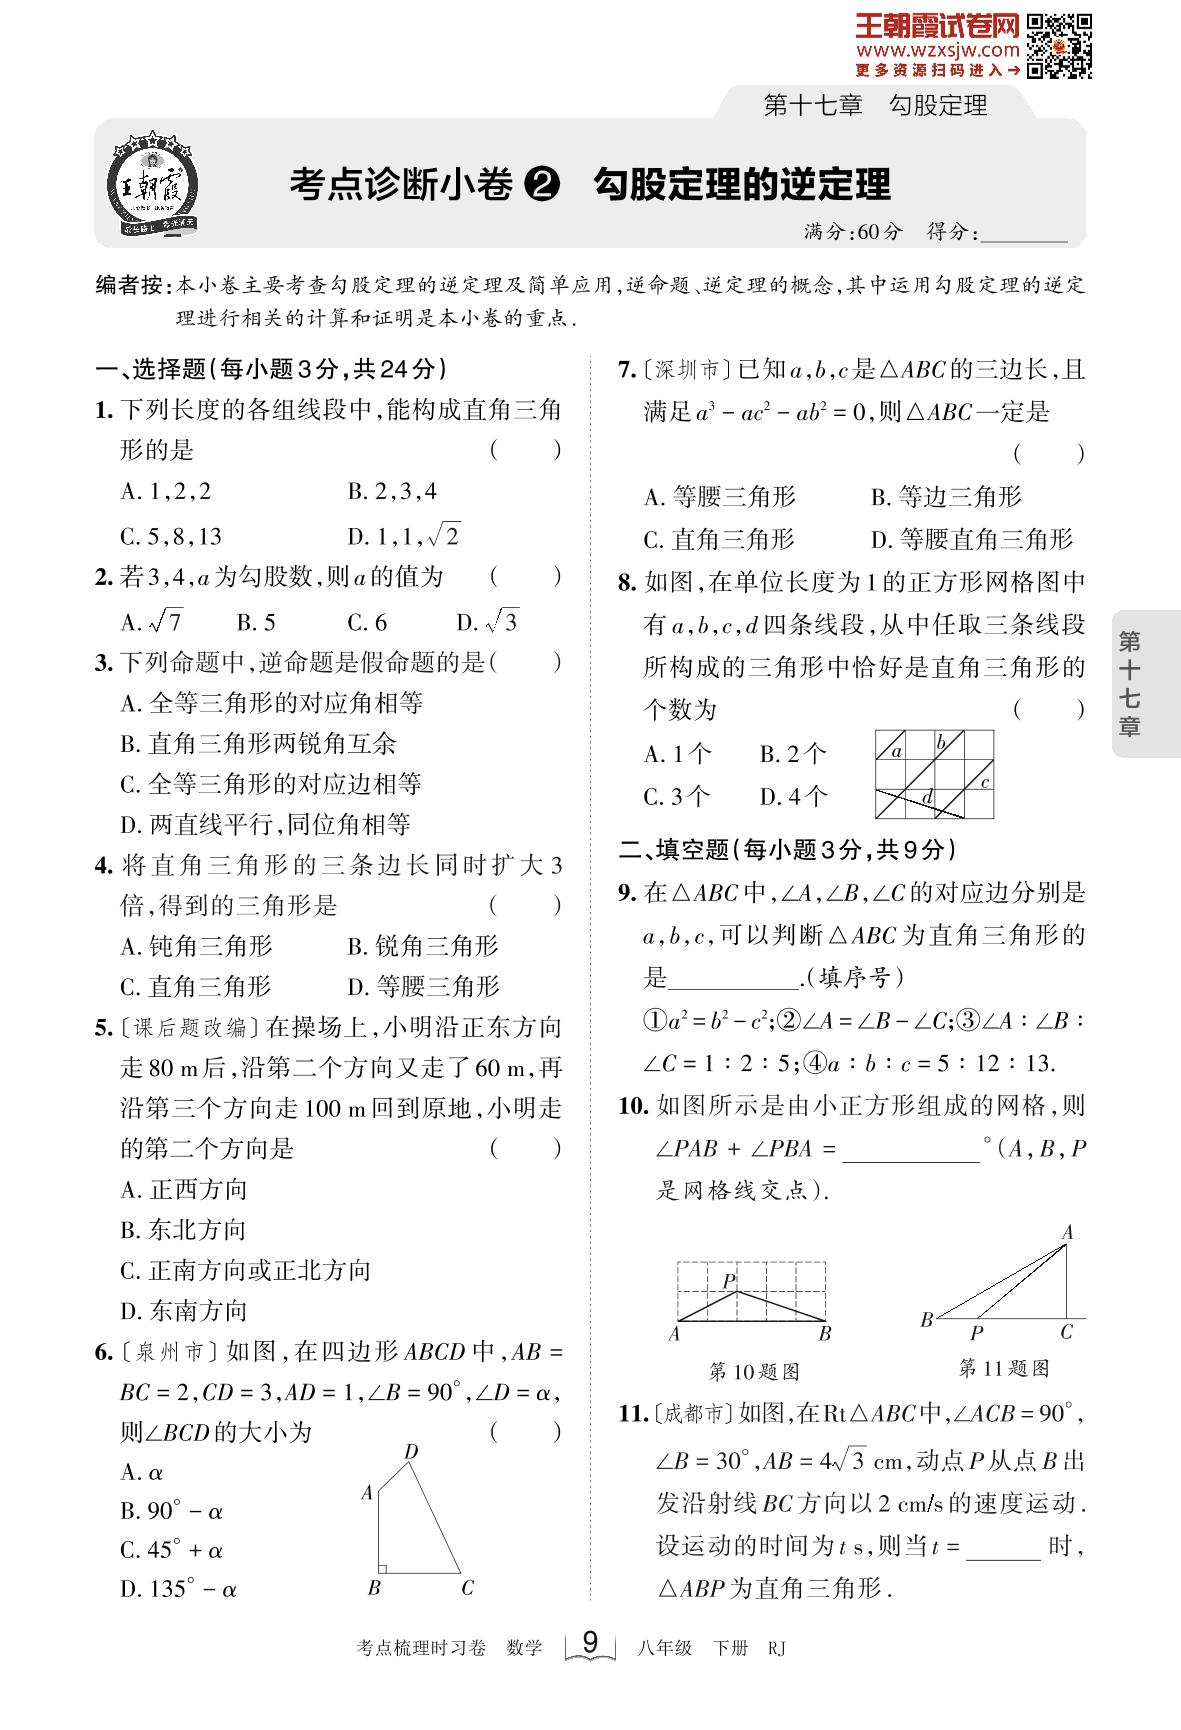 王朝霞试卷网
www.wzxsjw.com
更多资源扫码进入→
第十七章 勾股定理
王朝霞
考点诊断小卷❷ 勾股定理的逆定理
满分:60分 得分:________
编者按:本小卷主要考查勾股定理的逆定理及简单应用,逆命题、逆定理的概念,其中运用勾股定理的逆定
理进行相关的计算和证明是本小卷的重点.
一、选择题(每小题3分,共24分)
1. 下列长度的各组线段中,能构成直角三角
形的是 ( )
A. 1,2,2 B. 2,3,4
C. 5,8,13 D. 1,1,√2
2. 若3,4,a为勾股数,则a的值为 ( )
A. √7 B. 5 C. 6 D. √3
3. 下列命题中,逆命题是假命题的是( )
A. 全等三角形的对应角相等
B. 直角三角形两锐角互余
C. 全等三角形的对应边相等
D. 两直线平行,同位角相等
4. 将直角三角形的三条边长同时扩大3
倍,得到的三角形是 ( )
A. 钝角三角形 B. 锐角三角形
C. 直角三角形 D. 等腰三角形
5. 〔课后题改编〕在操场上,小明沿正东方向
走80 m后,沿第二个方向又走了60 m,再
沿第三个方向走100 m回到原地,小明走
的第二个方向是 ( )
A. 正西方向
B. 东北方向
C. 正南方向或正北方向
D. 东南方向
6. 〔泉州市〕如图,在四边形ABCD中,AB =
BC = 2,CD = 3,AD = 1,∠B = 90°,∠D = α,
则∠BCD的大小为 ( )
A. α
B. 90° - α
C. 45° + α
D. 135° - α
D
A
B C
7. 〔深圳市〕已知a,b,c是△ABC的三边长,且
满足a³ - ac² - ab² = 0,则△ABC一定是
( )
A. 等腰三角形 B. 等边三角形
C. 直角三角形 D. 等腰直角三角形
8. 如图,在单位长度为1的正方形网格图中
有a,b,c,d四条线段,从中任取三条线段
所构成的三角形中恰好是直角三角形的
个数为 ( )
A. 1个 B. 2个
C. 3个 D. 4个
a b
c
d
二、填空题(每小题3分,共9分)
9. 在△ABC中,∠A,∠B,∠C的对应边分别是
a,b,c,可以判断△ABC为直角三角形的
是__________.(填序号)
①a² = b² - c²;②∠A = ∠B - ∠C;③∠A∶∠B∶
∠C = 1∶2∶5;④a∶b∶c = 5∶12∶13.
10. 如图所示是由小正方形组成的网格,则
∠PAB + ∠PBA = __________°(A,B,P
是网格线交点).
P
A B
第10题图
A
B P C
第11题图
11. 〔成都市〕如图,在Rt△ABC中,∠ACB = 90°,
∠B = 30°,AB = 4√3 cm,动点P从点B出
发沿射线BC方向以2 cm/s的速度运动.
设运动的时间为t s,则当t = ______ 时,
△ABP为直角三角形.
第十七章
考点梳理时习卷 数学 9 八年级 下册 RJ